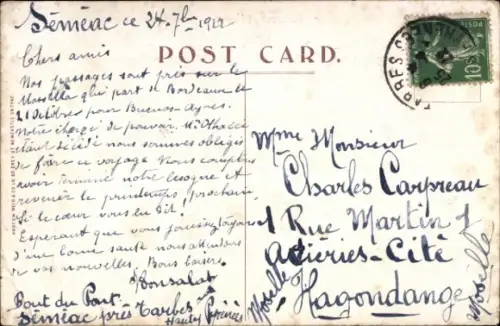 Séméac ce 24-7bre 1922
POST CARD.
Chers amis
Nos passages sont pris sur le
Massilia qui part de Bordeaux le
21 Octobre pour Buenos-Ayres.
Notre chargé de pouvoir, Mr
étant décédé nous sommes obligés
de faire ce voyage. Nous comptons
avoir terminé notre besogne et
revenir le printemps prochain
si le cœur vous en dit.
Esperant que vous jouissez toujours
d'une bonne santé nous attendons
de vos nouvelles. Bons baisers.
Bout du Pont
Séméac près Tarbes
Hautes Pyrénées
Mme Monsieur
Charles Carpreau
1 Rue Martin 1
Aciéries-Cité
Hagondange
Moselle
Moselle
TARBES
POSTES
10c